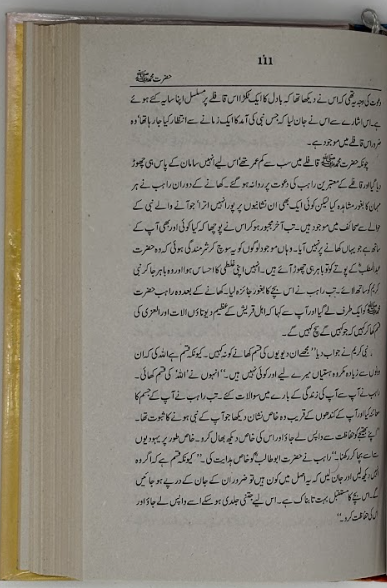 111
حضرت محمد ﷺ
دعوت کی وجہ یہ تھی کہ اس نے دیکھا تھا کہ بادل کا ایک ٹکڑا اس قافلے پر مسلسل اپنا سایہ کئے ہوئے
ہے۔ اس اشارے سے اس نے جان لیا کہ جس نبی کی آمد کا ایک زمانے سے انتظار کیا جا رہا تھا' وہ
ضرور اس قافلے میں موجود ہے۔
چونکہ حضرت محمد ﷺ قافلے میں سب سے کم عمر تھے' اس لیے انہیں سامان کے پاس ہی چھوڑ
دیا گیا اور قافلے کے معتبرین راہب کی دعوت پر روانہ ہو گئے۔ کھانے کے دوران راہب نے ہر
مہمان کا بغور مشاہدہ کیا لیکن کوئی ایک بھی ان نشانیوں پر پورا نہیں اترا' جو آنے والے نبی کے
حوالے سے صحائف میں موجود ہیں۔ تب آخر مجبور ہو کر اس نے پوچھا کہ کیا کوئی اور بھی آپ کے
ساتھ ہے جو یہاں کھانے پر نہیں آیا۔ وہاں موجود لوگوں کو یہ سوچ کر شرمندگی ہوئی کہ وہ حضرت
عبدالمطلب کے پوتے کو تو باہر ہی چھوڑ آئے ہیں۔ انہیں اپنی غلطی کا احساس ہوا اور وہ باہر جا کر نبی
کریم کو ساتھ لائے۔ تب راہب نے اس بچے کا بغور جائزہ لیا۔ کھانے کے بعد وہ راہب حضرت
محمد ﷺ کو ایک طرف لے گیا اور آپ سے کہا کہ اہل قریش کے عظیم دیوتاؤں الات اور العزیٰ کی
کھا کر کہیں کہ جو کہیں گے سچ کہیں گے۔
نبی کریم نے جواب دیا "مجھے ان دیویوں کی قسم کھانے کو نہ کہیں۔ کیونکہ قسم ہے اللہ کی کہ ان
دونوں سے زیادہ مکروہ ہستیاں میرے لیے اور کوئی نہیں ہیں۔" انہوں نے 'اللہ' کی قسم کھائی۔
راہب نے آپ سے آپ کی زندگی کے بارے میں سوالات کئے۔ تب راہب نے آپ کے جسم کا
معائنہ کیا اور آپ کے کندھوں کے قریب وہ خاص نشان دیکھا جو آپ کے نبی ہونے کا ثبوت تھا۔
اپنے بھتیجے کو حفاظت سے واپس لے جاؤ اور اس کی خاص دیکھ بھال کرو۔ خاص طور پر یہودیوں
سے اسے بچا کر رکھنا۔" راہب نے حضرت ابو طالب کو خاص ہدایت کی۔ "کیونکہ قسم ہے اگر وہ
دیکھ لیں اور جان لیں کہ یہ اصل میں کون ہیں تو ضرور ان کے جان کے درپے ہو جائیں
گے۔ اس بچے کا مستقبل بہت تابناک ہے۔ اس لیے جتنی جلدی ہو سکے اسے واپس لے جاؤ اور
اس کی حفاظت کرو۔"